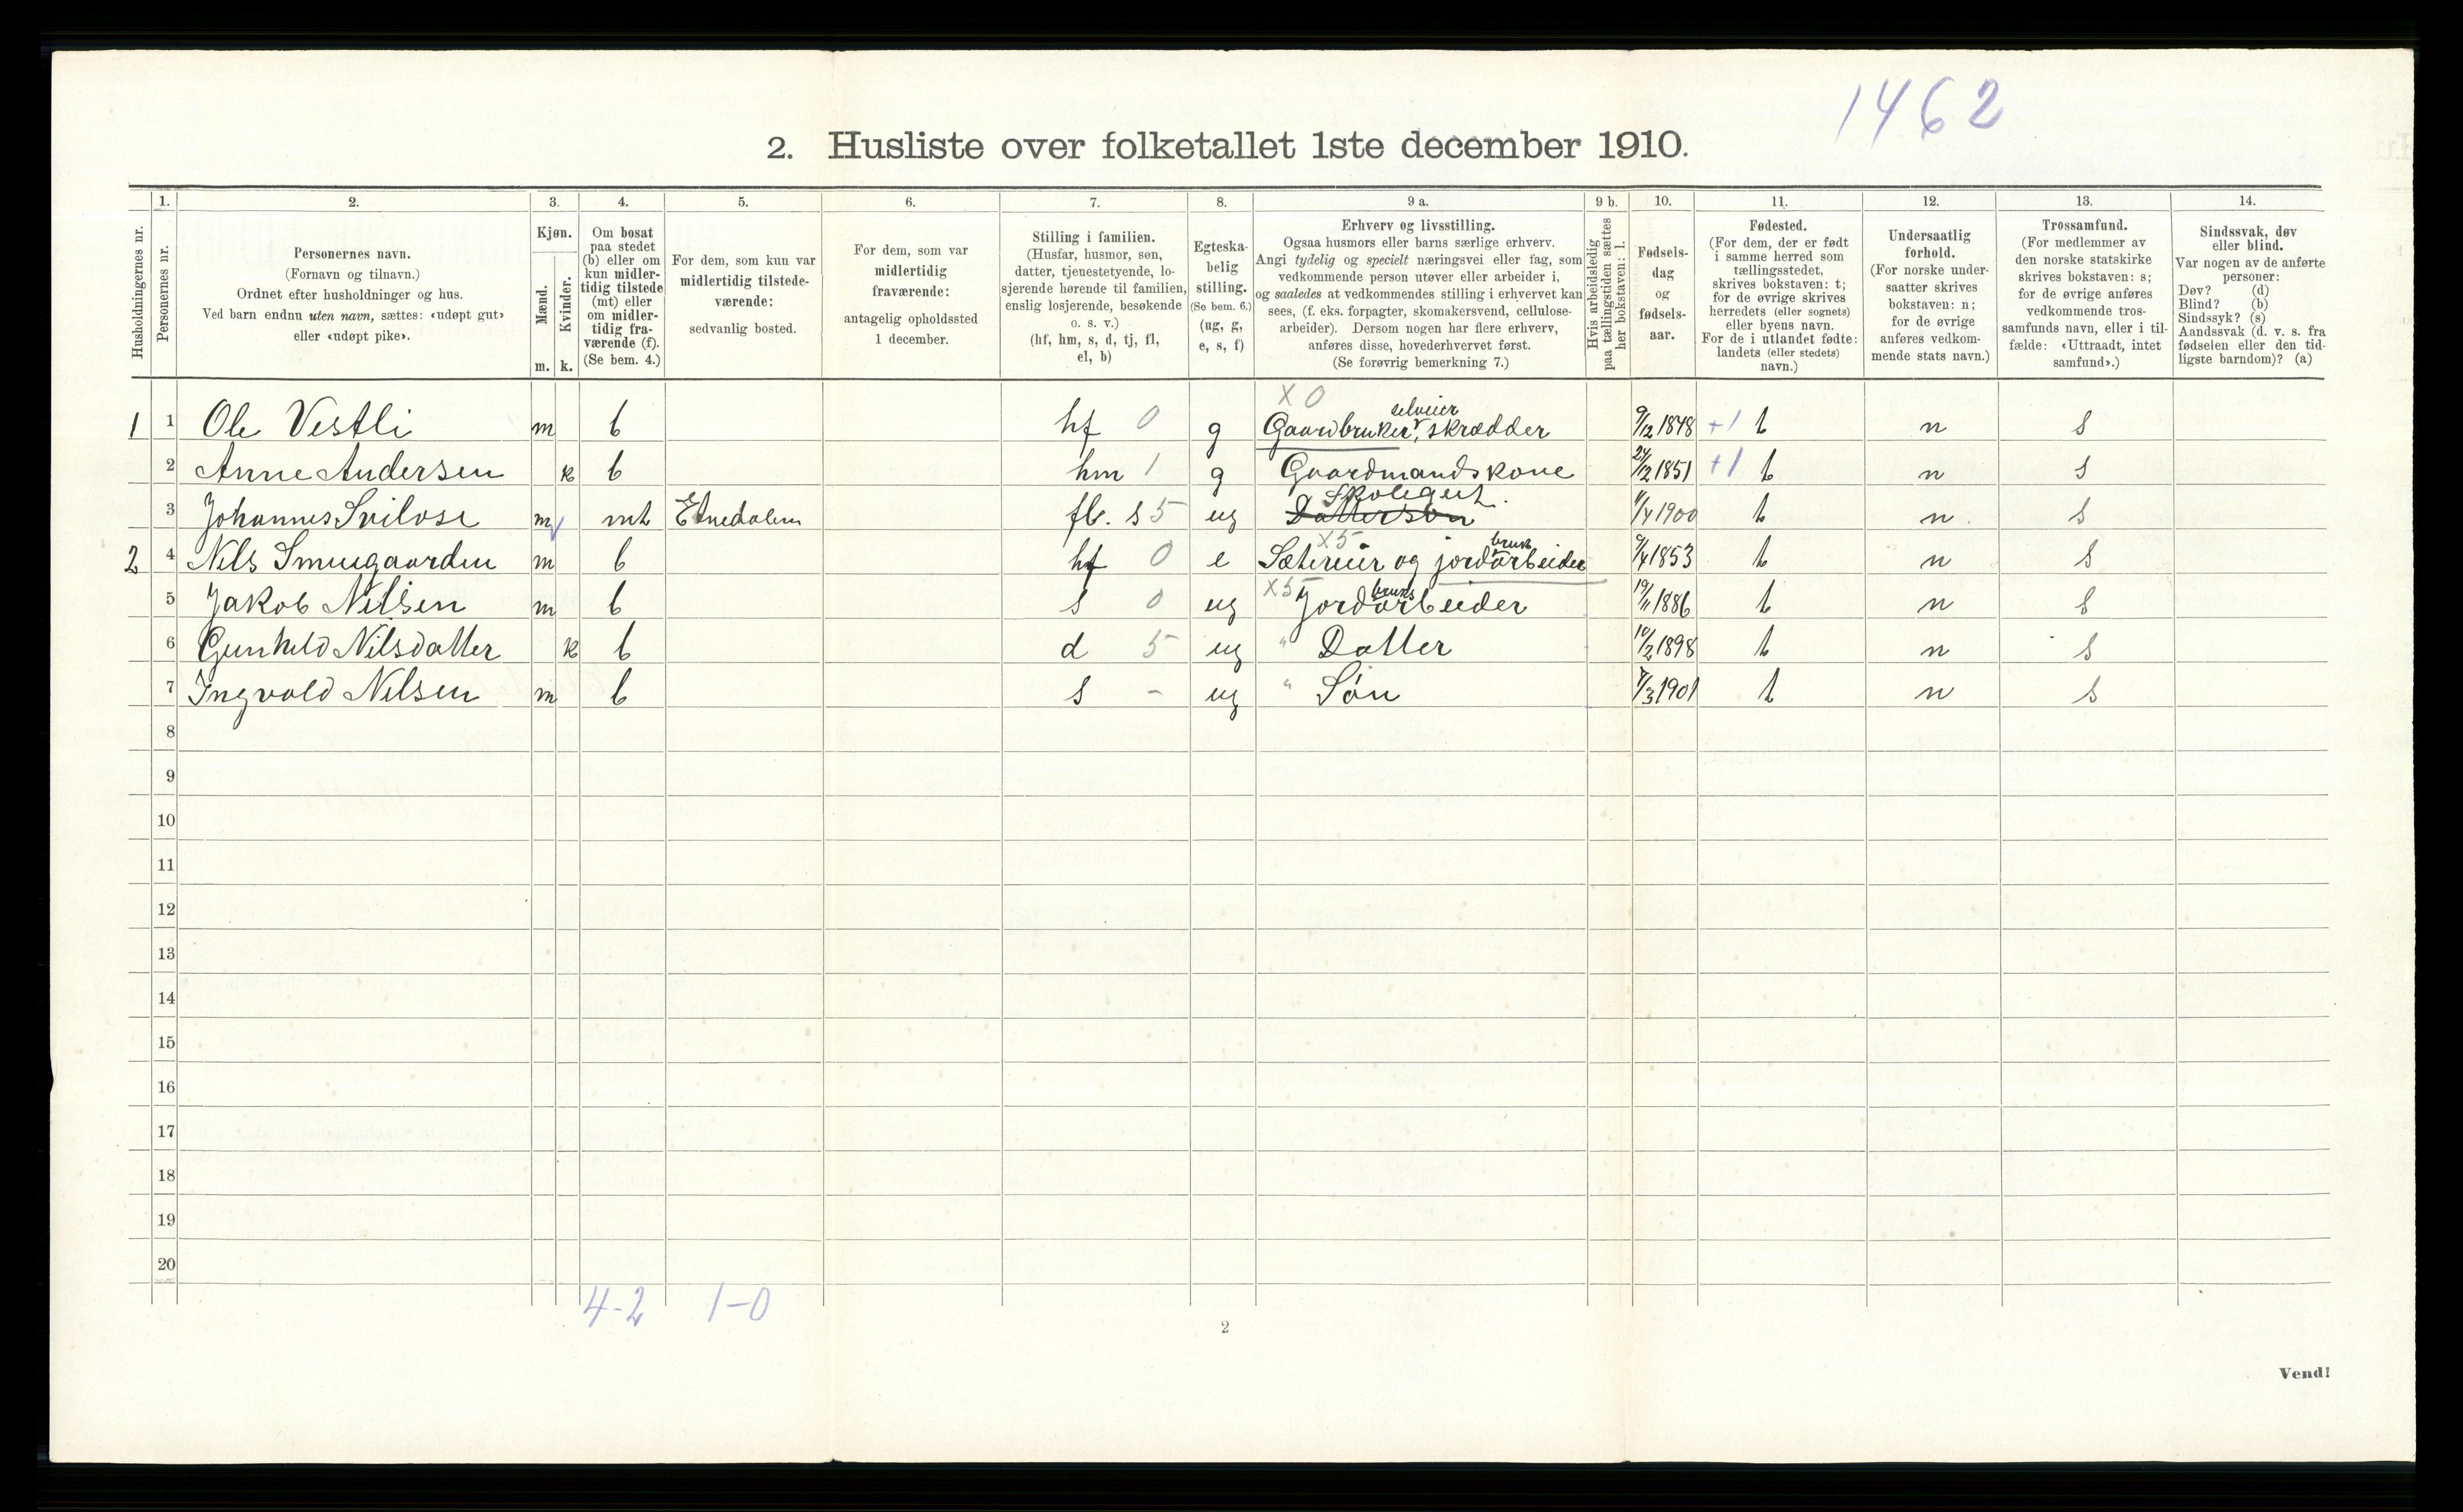 1462
2. Husliste over folketallet 1ste december 1910.
Husholdningernes nr.
1. Personernes nr.
2. Personernes navn.
(Fornavn og tilnavn.)
Ordnet efter husholdninger og hus.
Ved barn endnu uten navn, sættes: «udøpt gut»
eller «udøpt pike».
3. Kjøn.
Mænd. m.
Kvinder. k.
4. Om bosat
paa stedet
(b) eller om
kun midler-
tidig tilstede
(mt) eller
om midler-
tidig fra-
værende (f).
(Se bem. 4.)
5. For dem, som kun var
midlertidig tilstede-
værende:
sedvanlig bosted.
6. For dem, som var
midlertidig
fraværende:
antagelig opholdssted
1 december.
7. Stilling i familien.
(Husfar, husmor, søn,
datter, tjenestetyende, lo-
sjerende hørende til familien,
enslig losjerende, besøkende
o. s. v.)
(hf, hm, s, d, tj, fl,
el, b)
8. Egteska-
belig
stilling.
(Se bem. 6.)
(ug, g,
e, s, f)
9 a. Erhverv og livsstilling.
Ogsaa husmors eller barns særlige erhverv.
Angi tydelig og specielt næringsvei eller fag, som
vedkommende person utøver eller arbeider i,
og saaledes at vedkommendes stilling i erhvervet kan
sees, (f. eks. forpagter, skomakersvend, cellulose-
arbeider). Dersom nogen har flere erhverv,
anføres disse, hovederhvervet først.
(Se forøvrig bemerkning 7.)
9 b. Hvis arbeidsledig
paa tællingstiden sættes
her bokstaven: l.
10. Fødsels-
dag
og
fødsels-
aar.
11. Fødested.
(For dem, der er født
i samme herred som
tællingsstedet,
skrives bokstaven: t;
for de øvrige skrives
herredets (eller sognets)
eller byens navn.
For de i utlandet fødte:
landets (eller stedets)
navn.)
12. Undersaatlig
forhold.
(For norske under-
saatter skrives
bokstaven: n;
for de øvrige
anføres vedkom-
mende stats navn.)
13. Trossamfund.
(For medlemmer av
den norske statskirke
skrives bokstaven: s;
for de øvrige anføres
vedkommende tros-
samfunds navn, eller i til-
fælde: «Uttraadt, intet
samfund».)
14. Sindssvak, døv
eller blind.
Var nogen av de anførte
personer:
Døv? (d)
Blind? (b)
Sindssyk? (s)
Aandssvak (d. v. s. fra
fødselen eller den tid-
ligste barndom)? (a)
X 0
1 1 Ole Vestli m b hf 0 g Gaardbruker, selveier skrædder 9/12 1848 +1 t n s
2 Anne Andersen k b hm 1 g Gaardmandskone 24/12 1851 +1 t n s
3 Johannes m mt Etnedalen s 5 ug Dattersøn 1900 t n s
X5
2 4 Nils m b hf 0 e Sætereier og jordbrukarbeider 1853 t n s
5 Jakob Nilsen m b s 0 ug X5 Jordbruksarbeider 19/11 1886 t n s
6 Gunhild Nilsdatter k b d 5 ug " Datter 10/2 1898 t n s
7 Ingvald Nilsen m b s - ug " Søn 7/3 1901 t n s
8
9
10
11
12
13
14
15
16
17
18
19
20
4-2 1-0
2
Vend!